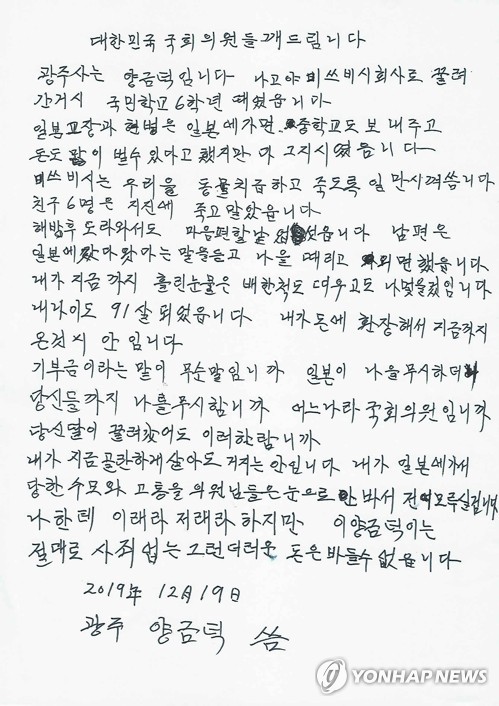 대한민국 국회의원들깨드림니다
광주사는 양금덕입니다 나고야 미쓰비시회사로 꿀려
간거시 국민학교 6학년 때썼읍니다
일본교장과 헌병은 일본에가면 중학교도 보내주고
돈도 많이 벌수있다고 했지만 다 그지시였읍니다
미쓰비시는 우리을 동물치급하고 죽도록 일만시껴씀니다
친구 6명은 지진에 죽고말았읍니다
해방후 도라와서도 마음편할날 업섯읍니다 남편은
일본에 갔다왔다는 말을들고 나을 때리고 외면했읍니다
내가 지금까지 흘린눈물은 배한척도 띠우고도 나멎을겄입니다
내나이도 91살 되였읍니다 내가돈에 환장해서 지금까지
온것시 안입니다
기부금이라는 말이 무순말임니까 일본이 나을무시하더니
당신들까지 나를무시함니까 어느나라 국회의원임니까
당신딸이 꿀려갔어도 이러한담니까
내가 지금곤란하게살아도 거지는 안입니다 내가 일본에가서
당한 수모와 고통을 의원님들은 눈으로 안 바서 전여모루실겁니다
나한테 이래라 저래라 하지만 이양금덕이는
절대로 사죄업는 그런더러운 돈은 바들수 없읍니다
2019年 12月19日
광주 양금덕 씀
YONHAP NEWS